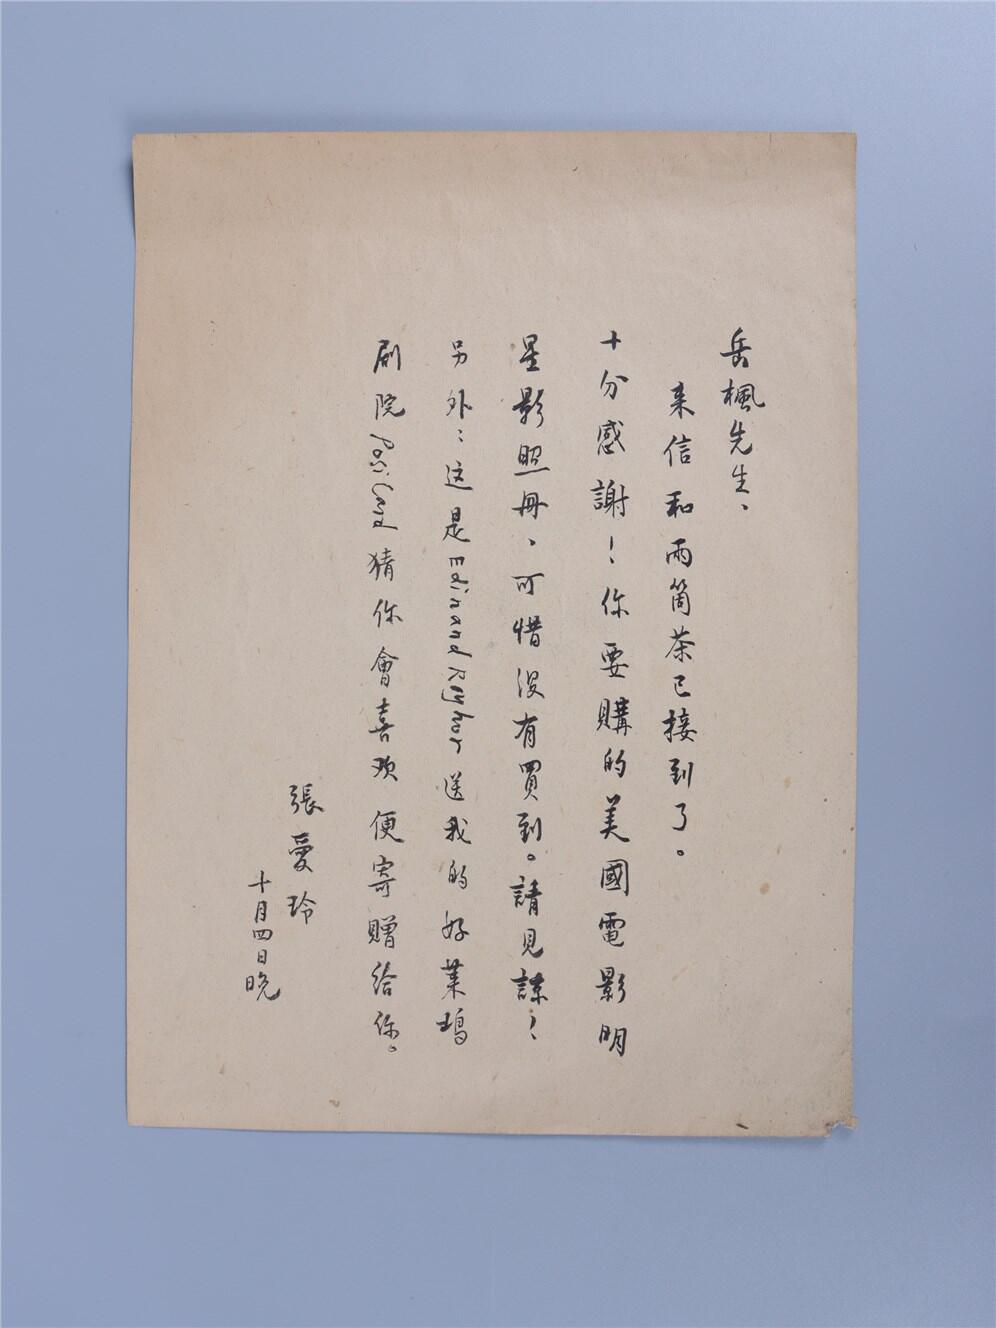 岳楓先生、
来信和兩箇茶已接到了。
十分感謝！你要購的美國電影明
星影照册、可惜沒有買到。請見諒！
另外：这是Edinand Rayhur送我的好莱塢
剧院Posi Card猜你會喜欢便寄赠给你。
張愛玲
十月四日晚